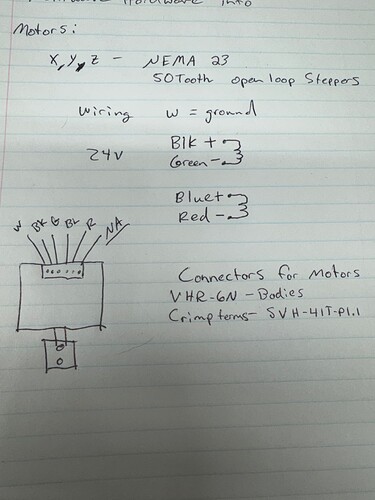 Hardware Info
Motors:
X, Y, Z - NEMA 23
50Tooth open loop Steppers
Wiring W = ground
24V
Blk +
Green -
Blue +
Red -
W Bk G BL R NA
Connectors for Motors
VHR-6N - Bodies
Crimp terms - SVH-41T-P1.1